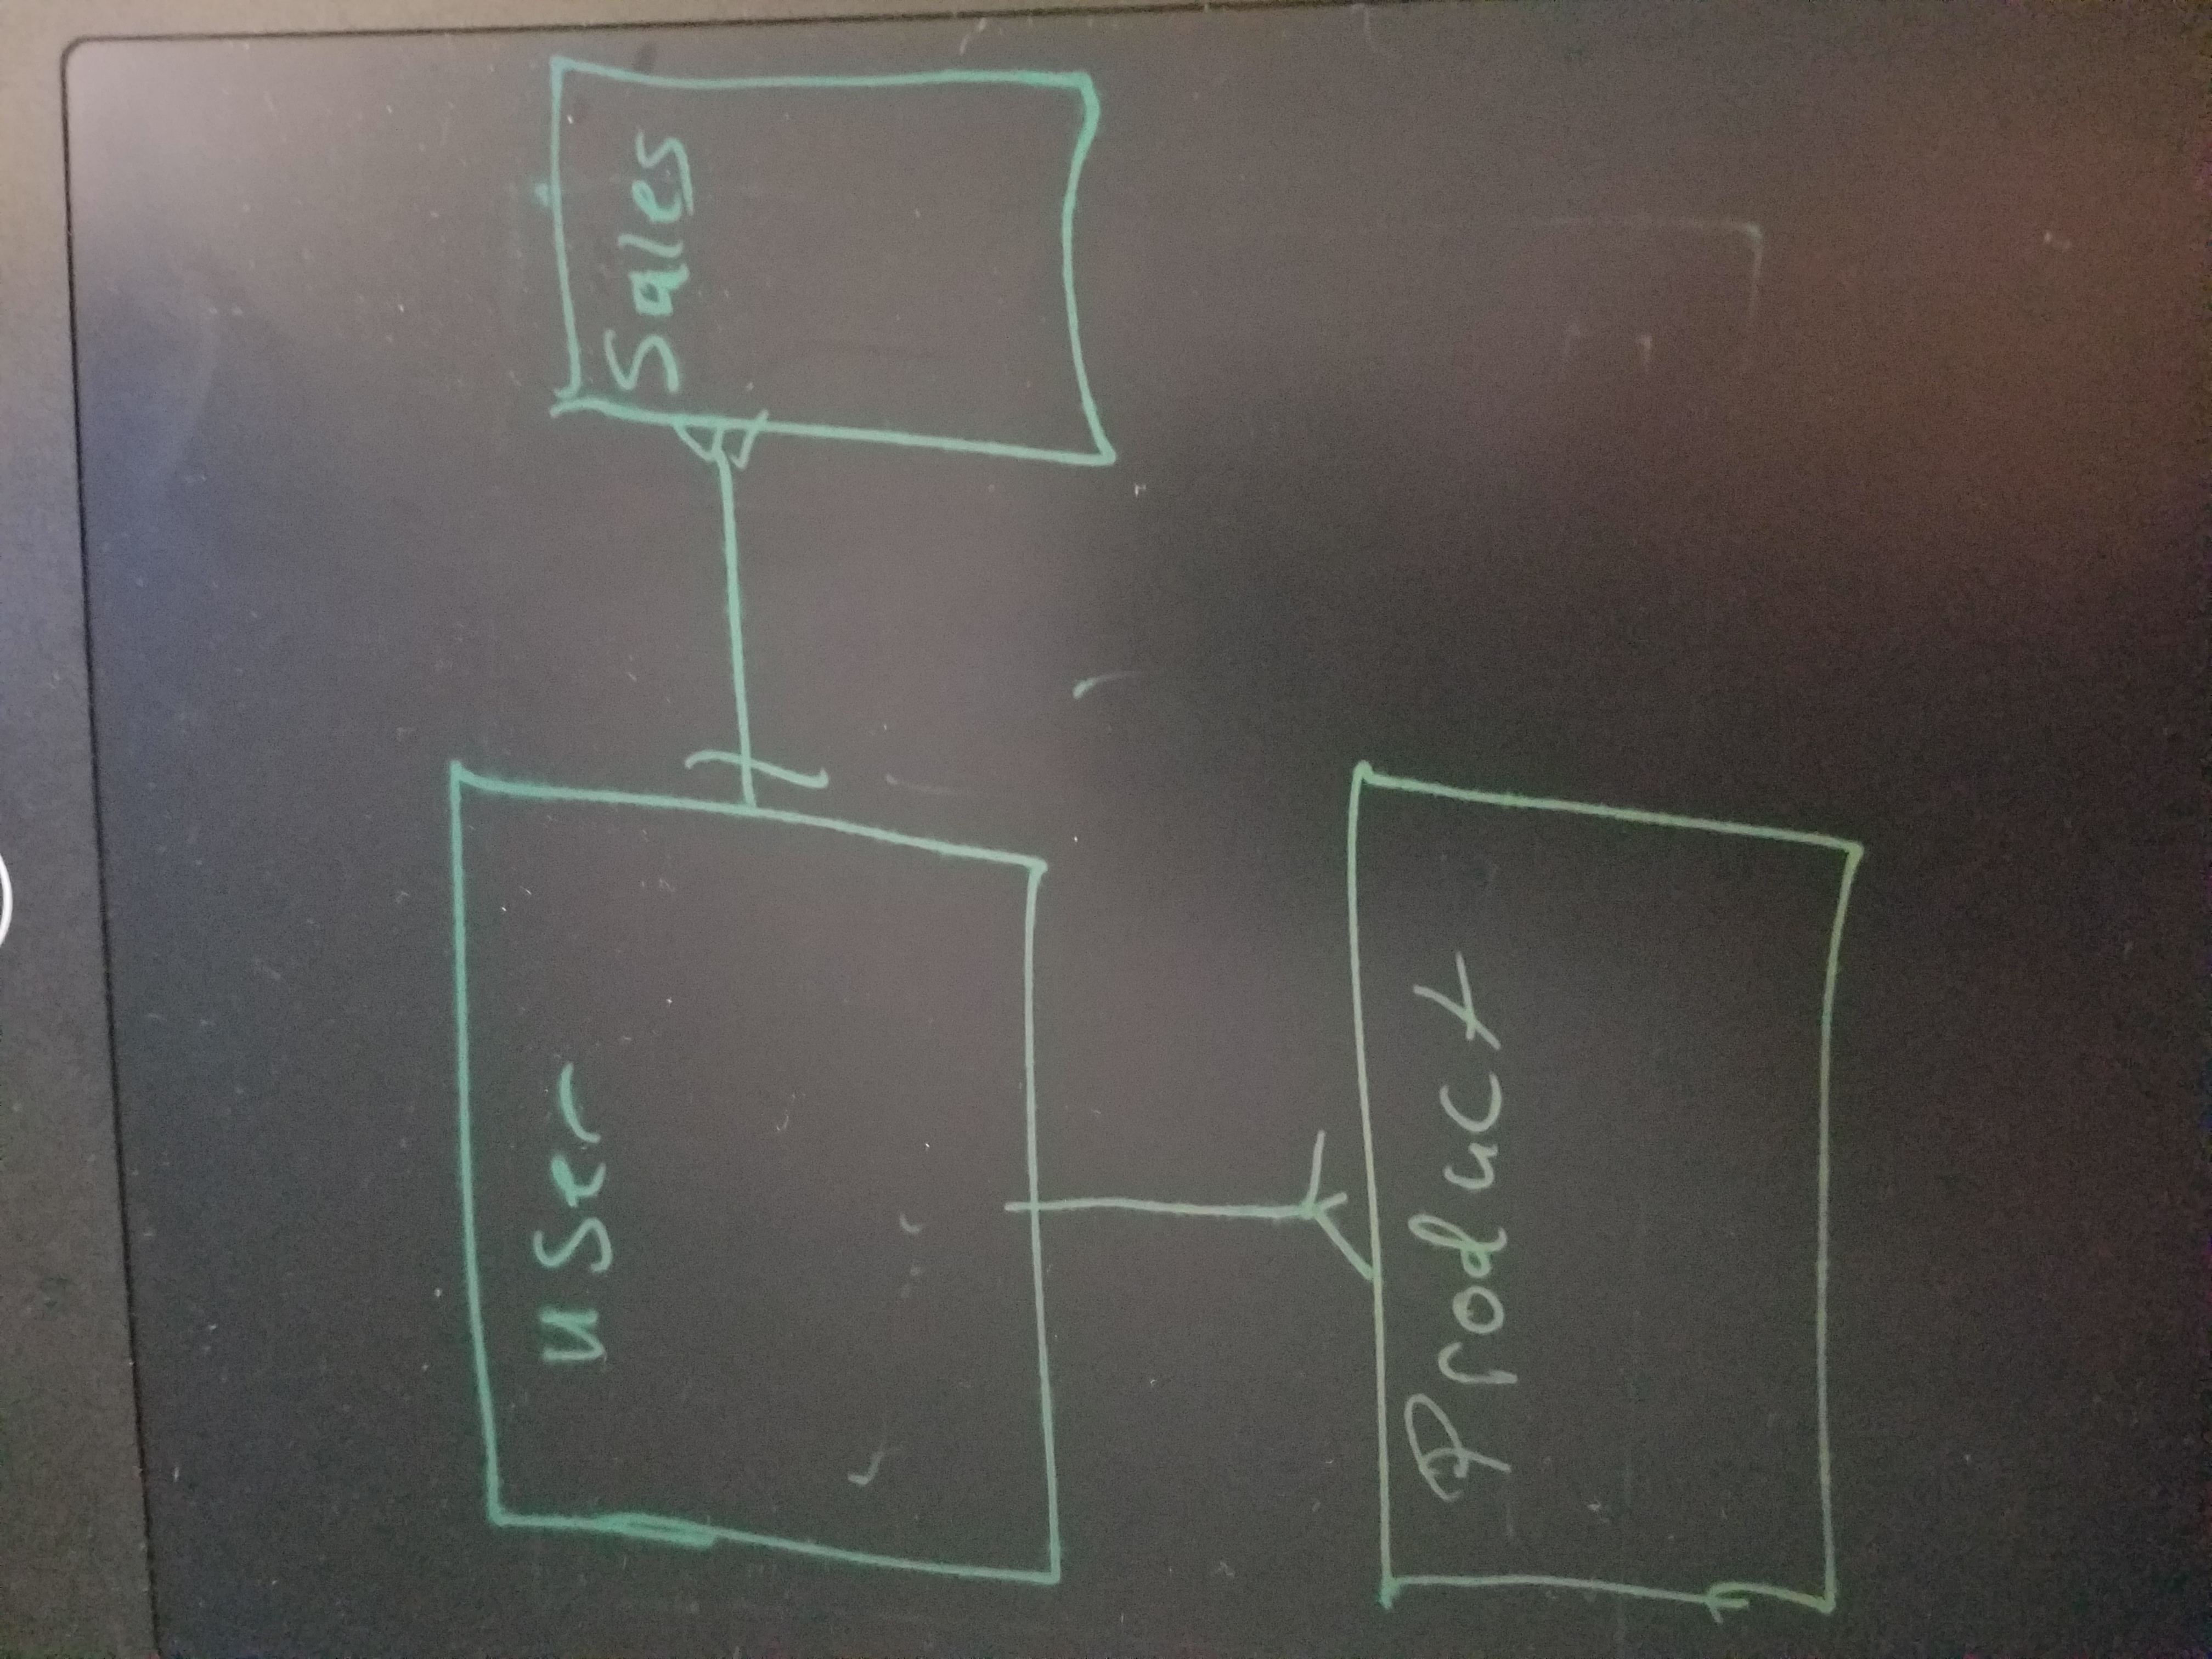 user
Sales
Product